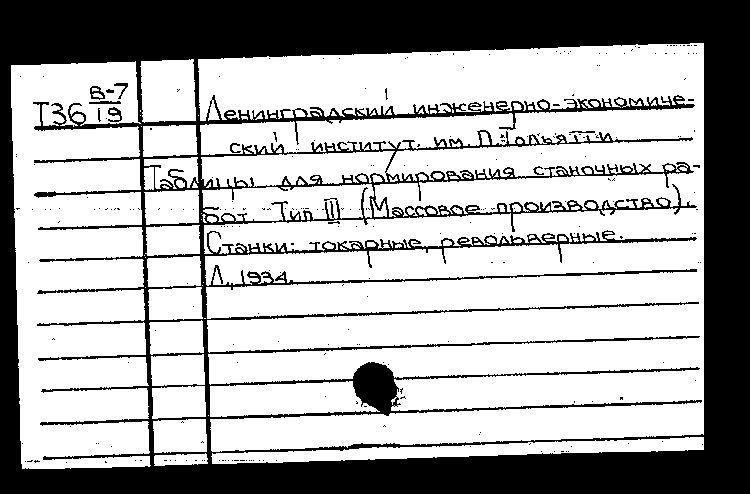 Т36 В-7/19
Ленинградский инженерно-экономиче-
ский институт им. П.Тольятти.
Таблицы для нормирования станочных ра-
бот. Тип III (Массовое производство).
Станки: токарные, револьверные.
Л., 1934.